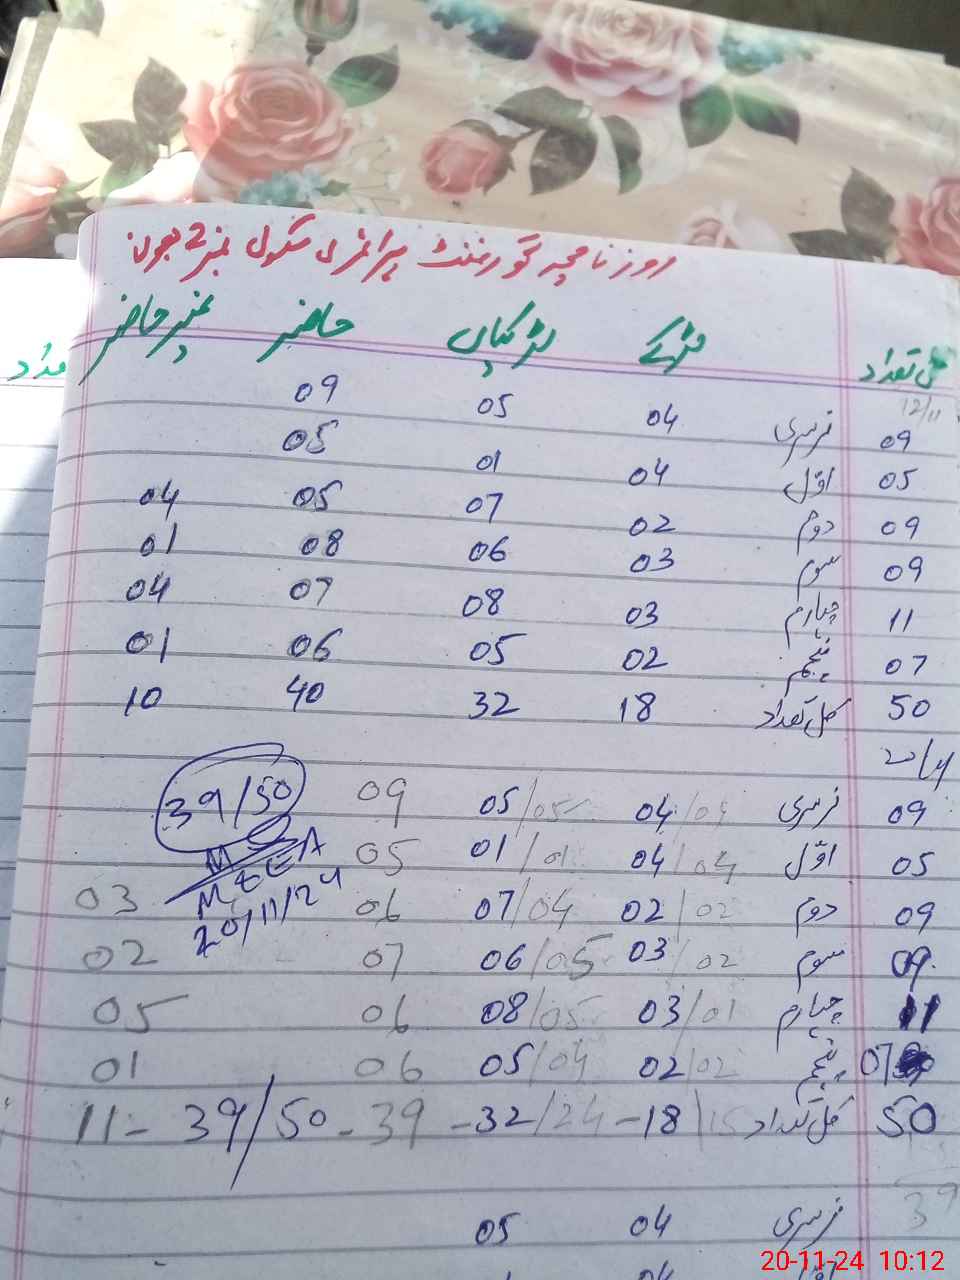 روزنامچہ گورنمنٹ پرائمری سکول نمبر 2
کل تعداد لڑکے لڑکیاں حاضر غیر حاضر
تعداد
12/11
09 نرسری 04 05 09
05 اوّل 04 01 05
09 دوم 02 07 05 04
09 سوم 03 06 08 01
11 چہارم 03 08 07 04
07 پنجم 02 05 06 01
50 کل تعداد 18 32 40 10
20/11
09 نرسری 04/04 05/05 09
05 اوّل 04/04 01/01 05
09 دوم 02/02 07/04 06 03
09 سوم 03/02 06/05 07 02
11 چہارم 03/01 08/05 06 05
07 پنجم 02/02 05/04 06 01
50 کل تعداد 18/15 - 32/24 - 39 - 39/50 - 11
39/50
MEA
20/11/24
39
نرسری 04 05
04
20-11-24 10:12